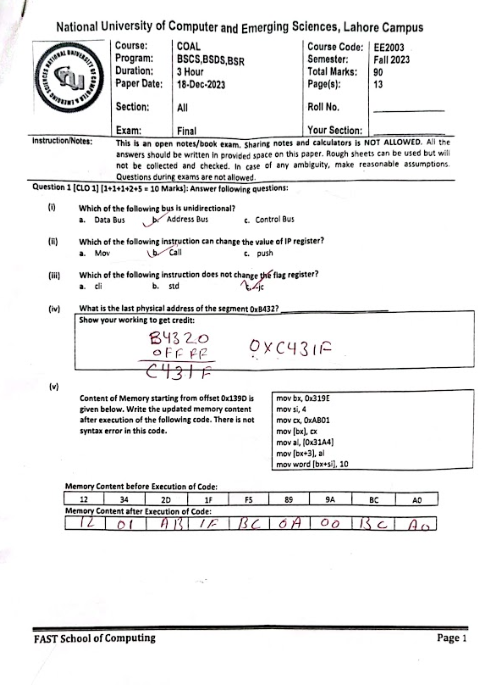 National University of Computer and Emerging Sciences, Lahore Campus
Course: COAL Course Code: EE2003
Program: BSCS,BSDS,BSR Semester: Fall 2023
Duration: 3 Hour Total Marks: 90
Paper Date: 18-Dec-2023 Page(s): 13
Section: All Roll No.
Exam: Final Your Section:
Instruction/Notes: This is an open notes/book exam. Sharing notes and calculators is NOT ALLOWED. All the
answers should be written in provided space on this paper. Rough sheets can be used but will
not be collected and checked. In case of any ambiguity, make reasonable assumptions.
Questions during exams are not allowed.
Question 1 [CLO 1] [1+1+1+2+5 = 10 Marks]: Answer following questions:
(i) Which of the following bus is unidirectional?
a. Data Bus b. Address Bus c. Control Bus
(ii) Which of the following instruction can change the value of IP register?
a. Mov b. Call c. push
(iii) Which of the following instruction does not change the flag register?
a. cli b. std c. jc
(iv) What is the last physical address of the segment 0xB432?
Show your working to get credit:
B4320
0FFFF
C431F
0XC431F
(v)
Content of Memory starting from offset 0x319D is
given below. Write the updated memory content
after execution of the following code. There is not
syntax error in this code.
mov bx, 0x319E
mov si, 4
mov cx, 0xAB01
mov [bx], cx
mov al, [0x31A4]
mov [bx+3], al
mov word [bx+si], 10
Memory Content before Execution of Code:
12 34 2D 1F F5 89 9A BC A0
Memory Content after Execution of Code:
12 01 AB 1F BC 0A 00 BC A0
FAST School of Computing Page 1